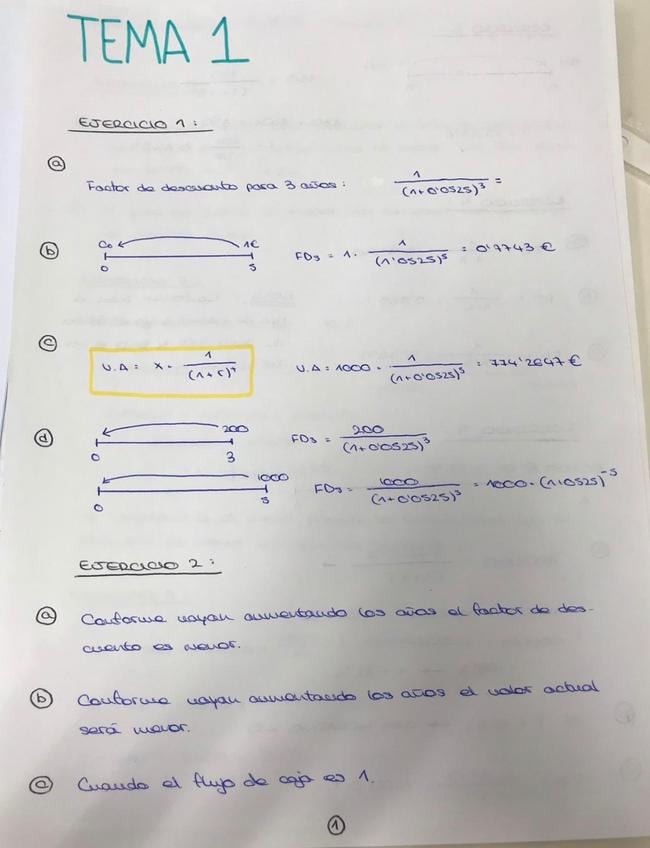 TEMA 1
EJERCICIO 1:
a
Factor de descuento para 3 años: 1/(1+0'0525)^3 =
b
C0 1€
0 5
FD5 = 1 · 1/(1'0525)^5 = 0'7743 €
c
V.A = x · 1/(1+r)^t
V.A = 1000 · 1/(1+0'0525)^5 = 774'2647 €
d
200
0 3
FD3 = 200/(1+0'0525)^3
1000
0 5
FD5 = 1000/(1+0'0525)^5 = 1000 · (1'0525)^-5
EJERCICIO 2:
a Conforme vayan aumentando los años el factor de des-
cuento es menor.
b Conforme vayan aumentando los años el valor actual
será menor.
c Cuando el flujo de caja es 1.
1